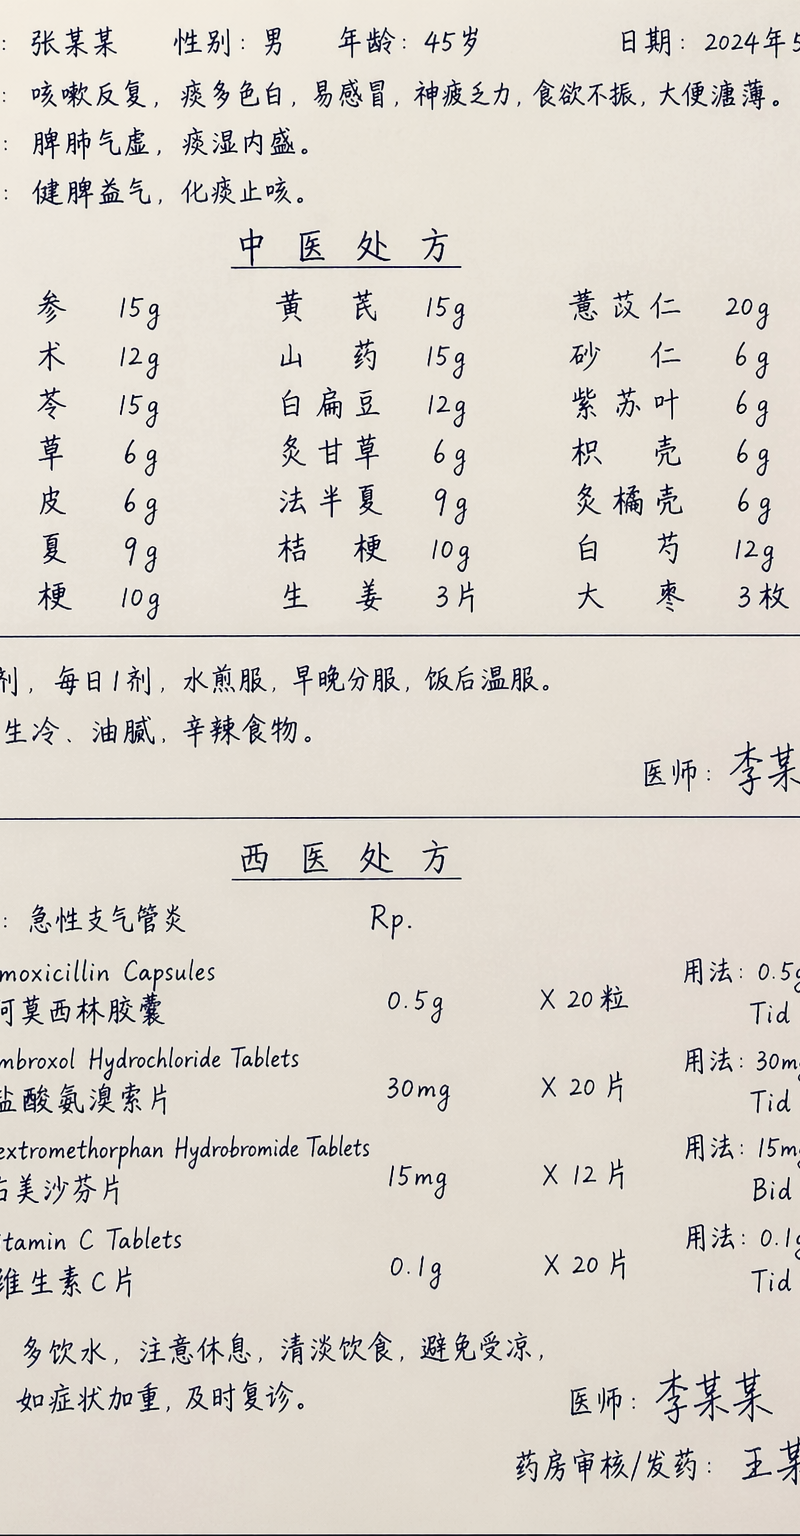 : 张某某 性别: 男 年龄: 45岁 日期: 2024年5
: 咳嗽反复, 痰多色白, 易感冒, 神疲乏力, 食欲不振, 大便溏薄。
: 脾肺气虚, 痰湿内盛。
: 健脾益气, 化痰止咳。
中医处方
参 15g 黄芪 15g 薏苡仁 20g
术 12g 山药 15g 砂仁 6g
苓 15g 白扁豆 12g 紫苏叶 6g
草 6g 炙甘草 6g 枳壳 6g
皮 6g 法半夏 9g 炙橘壳 6g
夏 9g 桔梗 10g 白芍 12g
梗 10g 生姜 3片 大枣 3枚
剂, 每日1剂, 水煎服, 早晚分服, 饭后温服。
生冷、油腻, 辛辣食物。
医师: 李某
西医处方
: 急性支气管炎 Rp.
moxicillin Capsules 用法: 0.5g
阿莫西林胶囊 0.5g X 20粒 Tid
mbroxol Hydrochloride Tablets 用法: 30mg
盐酸氨溴索片 30mg X 20片 Tid
extromethorphan Hydrobromide Tablets 用法: 15mg
右美沙芬片 15mg X 12片 Bid
tamin C Tablets 用法: 0.1g
维生素C片 0.1g X 20片 Tid
多饮水, 注意休息, 清淡饮食, 避免受凉,
如症状加重, 及时复诊。
医师: 李某某
药房审核/发药: 王某